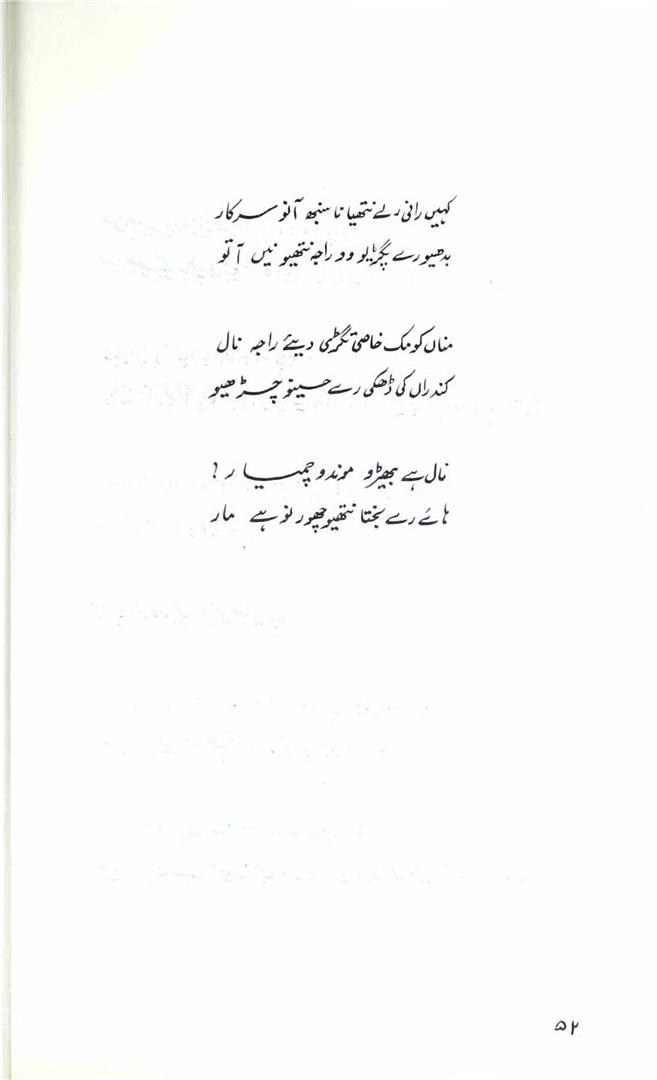 کہیں رانی رے نتھیا نا سنبھ آنو سرکار
بدھیو رے پگڑیلو وو راجہ نتھیو نیں آتو
مناں کو مک خاصی تگڑی دیئے راجہ نال
کندراں کی ڈھکی رے حسینو چڑھیو
نال ہے بھیڑو موندو چمیار ؟
ہائے رے بختا نتھیو چھور نو ہے مار
۵۲